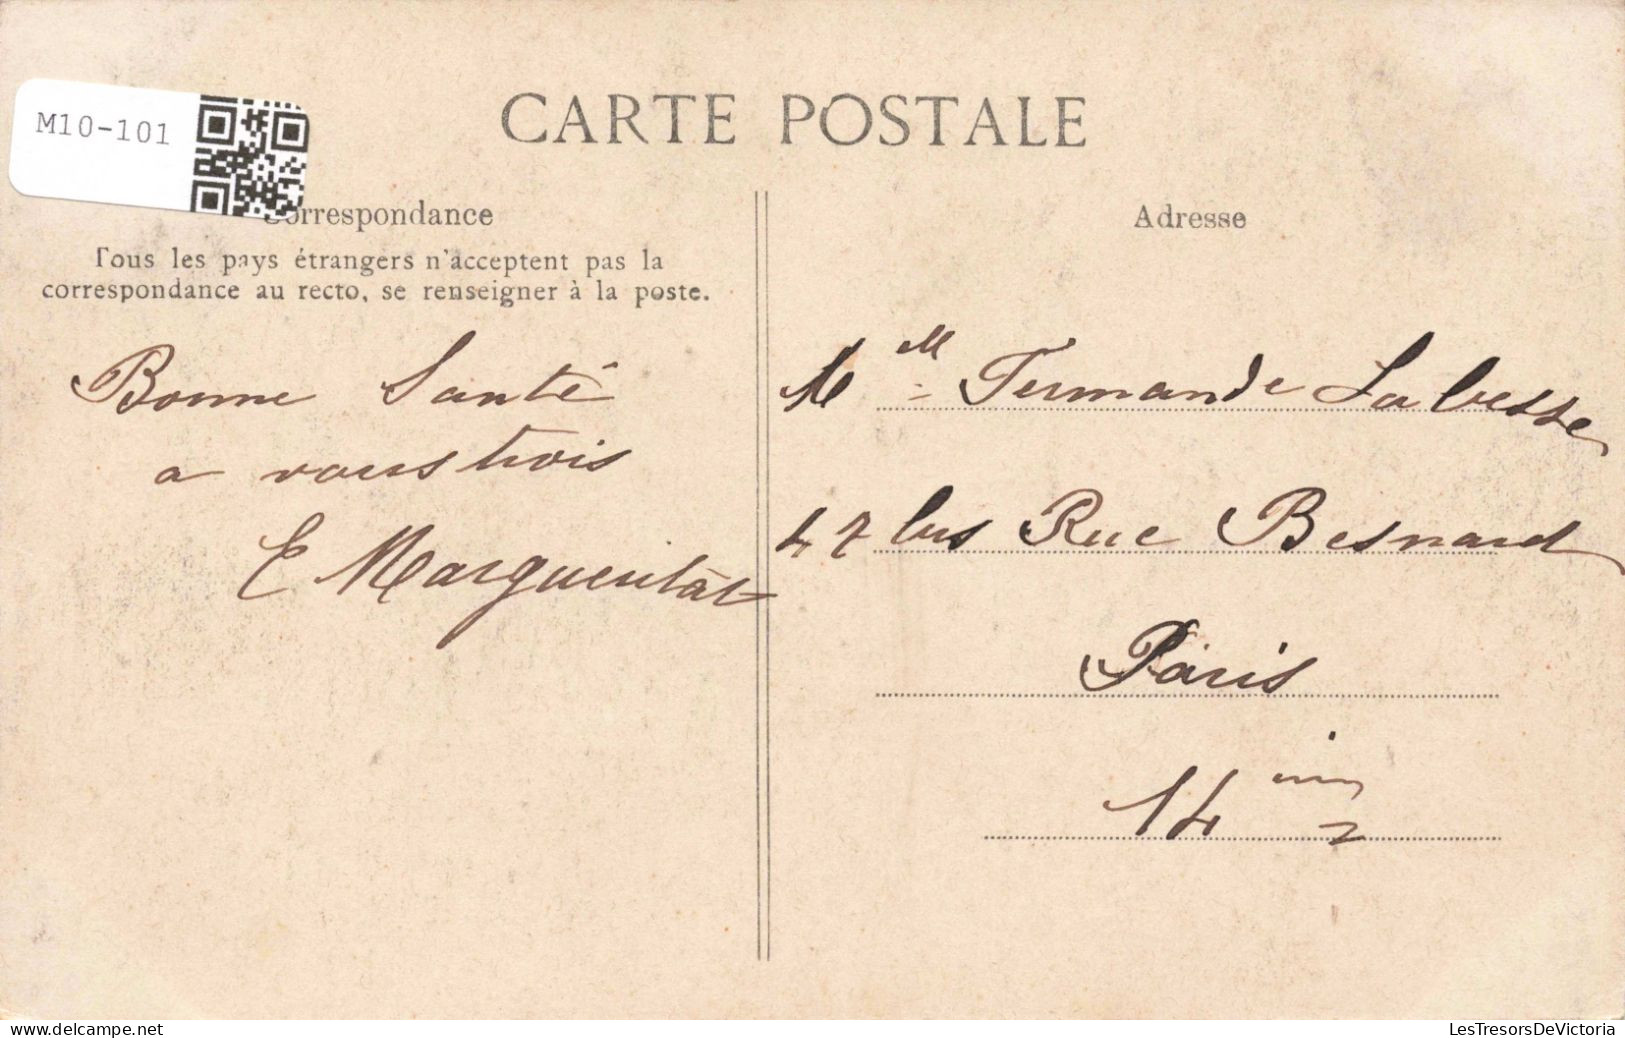 M10-101
CARTE POSTALE
Correspondance
Tous les pays étrangers n'acceptent pas la
correspondance au recto, se renseigner à la poste.
Bonne Santé
a vous trois
E Margueritat
Adresse
Mlle Fernande Labesse
47 bis Rue Besnard
Paris
14
delcampe.net
LesTresorsDeVictoria